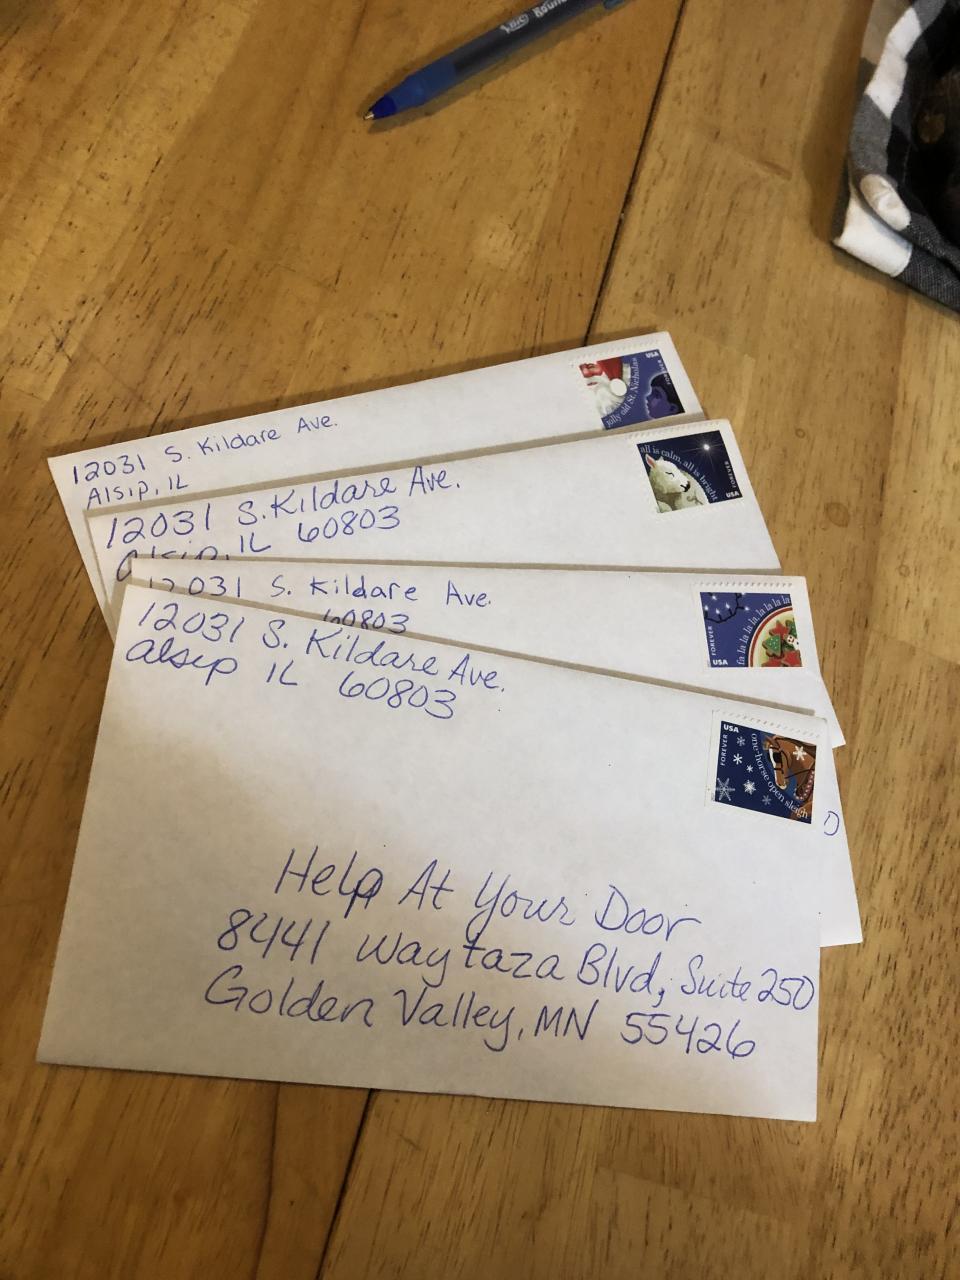 BIC Round
12031 S. Kildare Ave.
Alsip, IL
jolly old St. Nicholas
USA
12031 S. Kildare Ave.
Alsip, IL 60803
all is calm, all is bright
FOREVER
USA
12031 S. Kildare Ave.
60803
fa la la la la, la la la la
FOREVER
USA
12031 S. Kildare Ave.
alsip IL 60803
one-horse open sleigh
FOREVER
USA
D
Help At Your Door
8441 Waytaza Blvd, Suite 250
Golden Valley, MN 55426